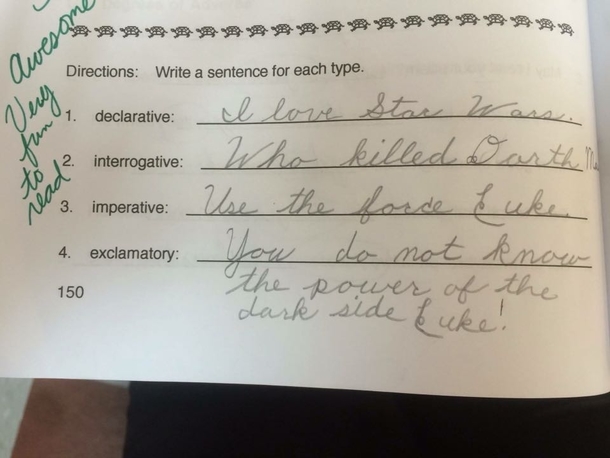 Awesome
Very
fun
to
read
Directions: Write a sentence for each type.
1. declarative: I love Star Wars.
2. interrogative: Who killed Darth
3. imperative: Use the force Luke.
4. exclamatory: You do not know
the power of the
150
dark side Luke!